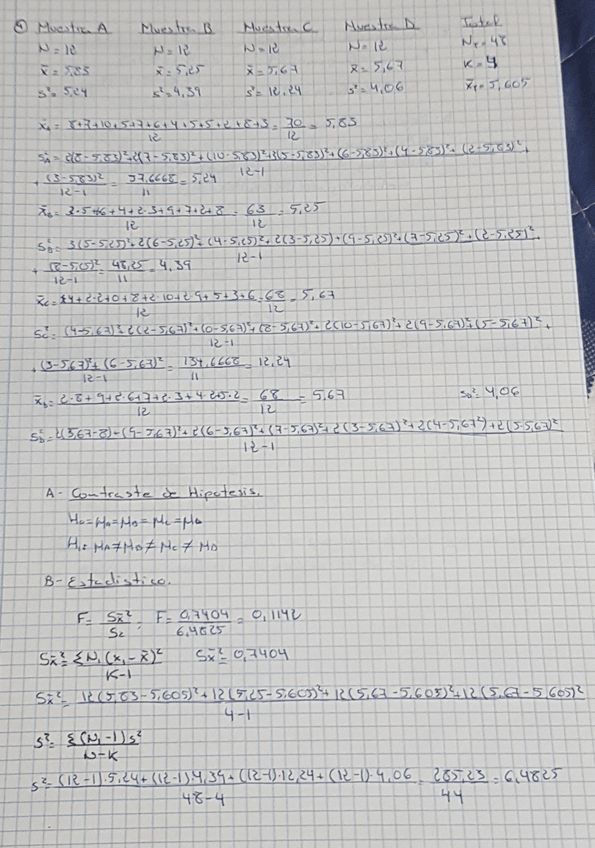 ⑤ Muestra A Muestra B Muestra C Muestra D Total
N = 12 N = 12 N = 12 N = 12 N_T = 48
x̄ = 5,83 x̄ = 5,25 x̄ = 5,67 x̄ = 5,67 K = 4
s² = 5,24 s² = 4,39 s² = 12,24 s² = 4,06 x̄_T = 5,605
x̄_A = 8+7+10+5+7+6+4+5+5+2+8+3 / 12 = 70 / 12 = 5,83
s²_A = 2(8-5,83)²+2(7-5,83)²+(10-5,83)²+3(5-5,83)²+(6-5,83)²+(4-5,83)²+(2-5,83)²+ / 12-1
+ (3-5,83)² / 12-1 = 57,6668 / 11 = 5,24
x̄_B = 3·5+6+4+2·3+9+7+2+8 / 12 = 63 / 12 = 5,25
s²_B = 3(5-5,25)²+2(6-5,25)²+(4-5,25)²+2(3-5,25)+(9-5,25)²+(7-5,25)²+(2-5,25)²+ / 12-1
+ (8-5,25)² / 12-1 = 48,25 / 11 = 4,39
x̄_C = 4+2·2+0+8+2·10+2·9+5+3+6 / 12 = 68 / 12 = 5,67
s²_C = (4-5,67)²+2(2-5,67)²+(0-5,67)²+(8-5,67)²+2(10-5,67)²+2(9-5,67)²+(5-5,67)²+ / 12-1
+ (3-5,67)²+(6-5,67)² / 12-1 = 134,6668 / 11 = 12,24
x̄_D = 2·8+9+2·6+7+2·3+4·2+5·2 / 12 = 68 / 12 = 5,67 s_D² = 4,06
s²_D = 2(5,67-8)+(9-5,67)²+2(6-5,67)²+(7-5,67)²+2(3-5,67)²+2(4-5,67²)+2(5-5,67)² / 12-1
A- Contraste de Hipotesis.
H₀ = μ_A = μ_B = μ_C = μ_D
H₁: μ_A ≠ μ_B ≠ μ_C ≠ μ_D
B- Estadistico.
F = Sx̄² / S² ; F = 0,7404 / 6,4825 = 0,1142
Sx̄² = ΣN₁(x₁-x̄)² / K-1 Sx̄² = 0,7404
Sx̄² = 12(5,83-5,605)²+12(5,25-5,605)²+12(5,67-5,605)²+12(5,67-5,605)² / 4-1
s² = Σ(N₁-1)s² / N-K
s² = (12-1)·5,24+(12-1)4,39+(12-1)·12,24+(12-1)·4,06 / 48-4 = 285,23 / 44 = 6,4825